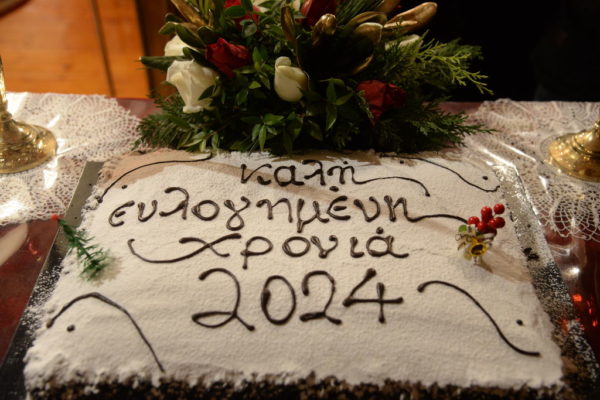 καλή
ευλογημένη
χρονιά
2024